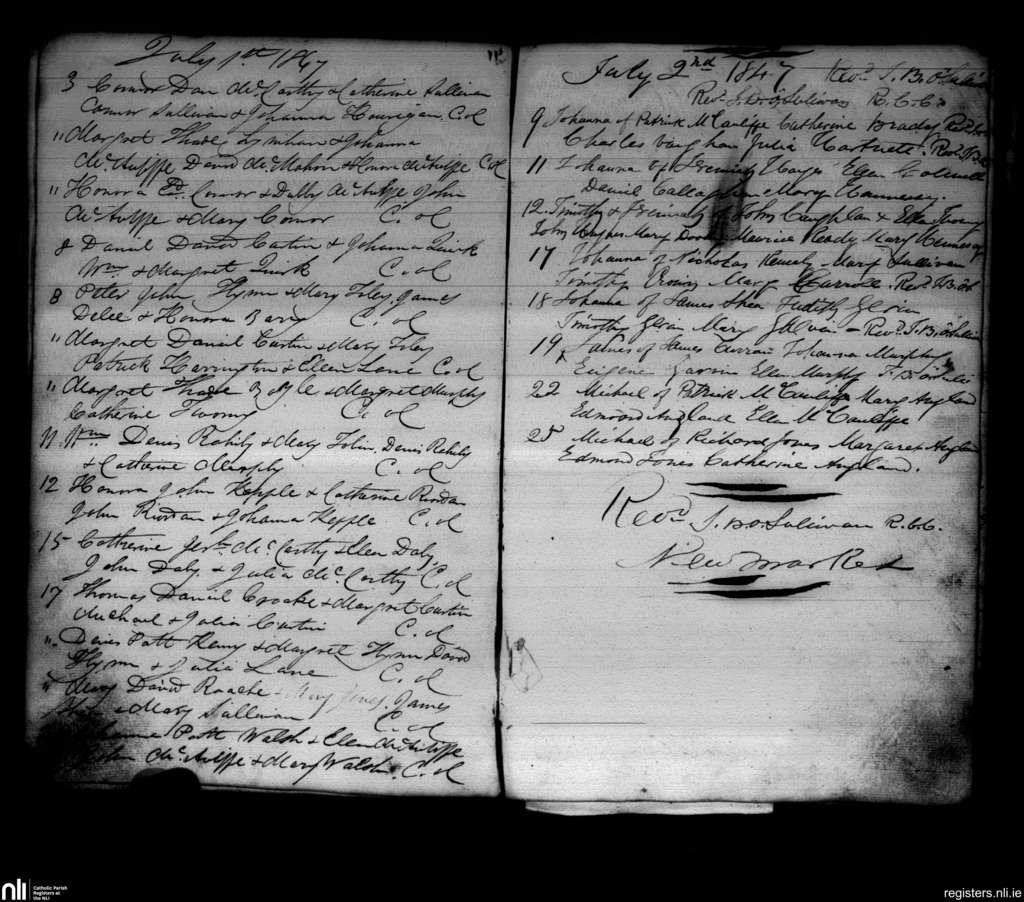 July 1st 1847
3 Connor Dan McCarthy & Catherine Sullivan
Connor Sullivan & Johanna Hourigan C. ol
" Margret Thade Lynihan & Johanna
McAuliffe David McMahon & Honor McAuliffe C. ol
" Honora Ed. Connor & Debby McAuliffe John
McAuliffe & Mary Connor C. ol
8 Daniel David Curtin & Johanna Quirk
Wm. & Margret Quirk C. ol
8 Peter John Flynn & Mary Foley. James
& Honora Barry C. ol
" Margret Daniel Curtin & Mary Foley
Patrick Harrington & Ellen Lane C. ol
" Margret Thade & Margret Murphy
Catherine Twomy C. ol
11 Wm. Denis Rahily & Mary Tobin, Denis Rahily
& Catherine Murphy C. ol
12 Honora John Kepple & Catherine Riordan
John Riordan & Johanna Kepple C. ol
15 Catherine Jerh. McCarthy & Ellen Daly
John Daly & Julia McCarthy C. ol
17 Thomas Daniel Crooke & Margret Curtin
Michael & Julia Curtin C. ol
" Denis Patt Keny & Margret Flynn David
Flynn & Julia Lane C. ol
" Mary David Roache & Mary Jones. James
& Mary Sullivan C. ol
Patt Walsh & Ellen McAuliffe
John McAuliffe & Mary Walsh. C. ol
July 2nd 1847 Revd. J. B. O'Sulivan
Revd. J. B. O'Sulivan R.C.C.
9 Johanna of Patrick McCauliffe Catherine Brady Revd.
Charles Vaughan Julia
11 Johanna of Jeremiah Hayes Ellen
Daniel Callaghan Mary Hennessy.
12. Timothy & Jeremiah of John Caughlan & Ellen
John Hughes Mary Maurice Ready Mary Hennessy
17 Johanna of Nicholas Mary Sullivan
Timothy Cronin Mary Carroll. Revd. J.B.
18 Johanna of James Shea Judith
Timothy Mary Revd. J.B. O'Sulivan
19 James of James Curran Johanna Murphy
Eugene Garvin Ellen Murphy J. B. O'Sulivan
22 Michael of Patrick McCauliffe Mary Angland
Edmond Angland Ellen McCauliffe
25 Michael of Richard Jones Margaret Angland
Edmond Jones Catherine Angland.
Revd. J. B. O.Sulivan R.C.C.
Newmarket
nli
Catholic Parish
Registers at
the NLI
registers.nli.ie